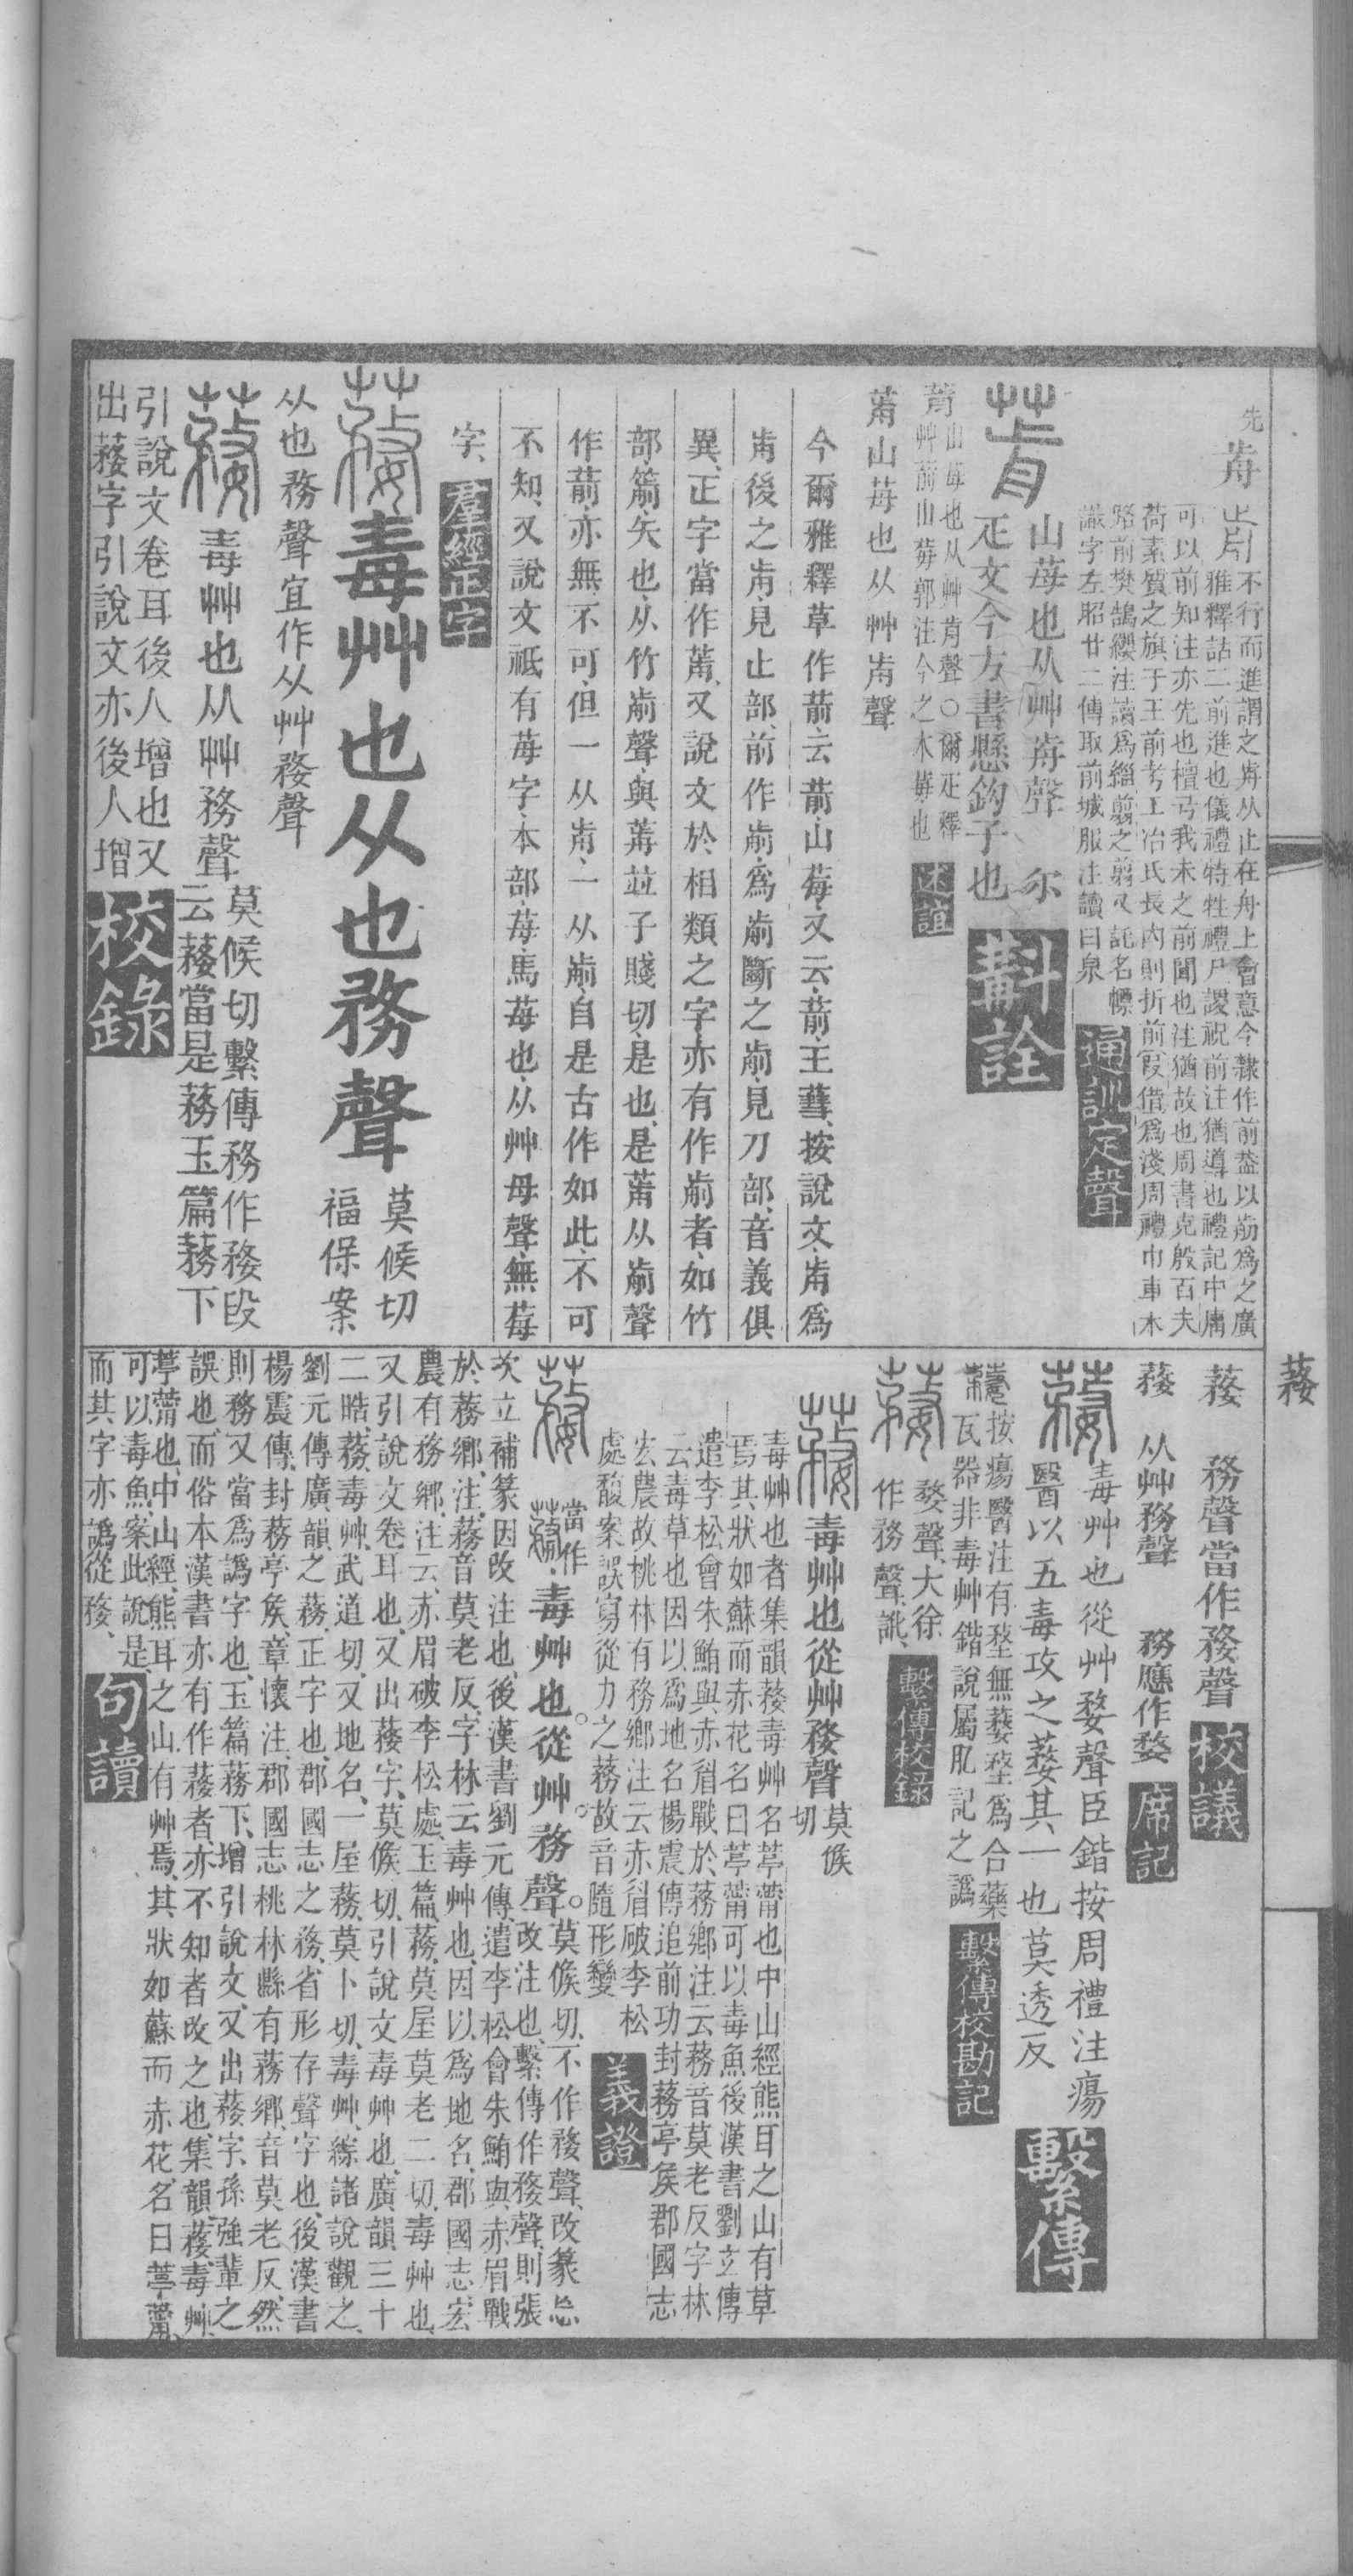 先歬
不行而進謂之歬从止在舟上會意今隸作前葢以歬爲之廣
雅釋詁二前進也儀禮特牲禮尸謖祝前注猶導也禮記中庸
可以前知注亦先也檀弓我未之前聞也注猶故也周書克殷百夫
荷素質之旗于王前考工冶氏長內則折前叚借爲淺周禮巾車木
路前樊鵠纓注讀爲緇翦之翦又託名幖
識字左昭廿二傳取前城服注讀曰泉
通訓定聲
山莓也从艸歬聲 尒
疋文今方書懸鉤子也
斠詮
葥山莓也从艸歬聲〇爾疋釋
艸葥山莓郭注今之木莓也
述誼
葥山莓也从艸歬聲
今爾雅釋草作葥云葥山莓又云葥王蔧按說文歬爲
歬後之歬見止部前作㓩爲㓩斷之㓩見刀部音義俱
異正字當作葥又說文於相類之字亦有作㓩者如竹
部箭矢也从竹㓩聲與葥竝子賤切是也是葥从㓩聲
作葥亦無不可但一从歬一从㓩自是古作如此不可
不知又說文祇有莓字本部莓馬莓也从艸母聲無莓
字
羣經正字
毒艸也从也務聲
莫候切
福保案
从也務聲宜作从艸務聲
毒艸也从艸務聲
莫候切繫傳務作婺段
云蓩當是蓩玉篇蓩下
引說文卷耳後人增也又
出蓩字引說文亦後人增
校錄
蓩
蓩 務聲當作婺聲
校議
蓩 从艸務聲 務應作婺
席記
毒艸也從艸婺聲臣鍇按周禮注瘍
醫以五毒攻之蓩其一也莫透反
繫傳
按瘍醫注有堥無蓩堥爲合藥
瓦器非毒艸鍇說屬肊記之譌
繫傳校勘記
婺聲大徐
作務聲訛
繫傳校錄
毒艸也從艸務聲
莫候
切
毒艸也者集韻蓩毒艸名葶薴也中山經熊耳之山有草
焉其狀如蘇而赤花名曰葶薴可以毒魚後漢書劉立傳
遣李松會朱鮪與赤眉戰於蓩鄉注云蓩音莫老反字林
云毒草也因以爲地名楊震傳追前功封蓩亭矦郡國志
宏農故桃林有務鄉注云赤眉破李松
處馥案誤寫從力之蓩故音隨形變
義證
當作
毒艸也從艸務聲
莫候切不作婺聲改篆忘
改注也繫傳作婺聲則張
次立補篆因改注也後漢書劉元傳遣李松會朱鮪與赤眉戰
於蓩鄉注蓩音莫老反字林云毒艸也因以爲地名郡國志宏
農有務鄉注云赤眉破李松處玉篇蓩莫屋莫老二切毒艸也
又引說文卷耳也又出蓩字莫候切引說文毒艸也廣韻三十
二晧蓩毒艸武道切又地名一屋蓩莫卜切毒艸綜諸說觀之
劉元傳廣韻之蓩正字也郡國志之務省形存聲字也後漢書
楊震傳封蓩亭矦章懷注郡國志桃林縣有蓩鄉音莫老反然
則務又當爲譌字也玉篇蓩下增引說文又出蓩字孫強輩之
誤也而俗本漢書亦有作蓩者亦不知者改之也集韻蓩毒艸
葶薴也中山經熊耳之山有艸焉其狀如蘇而赤花名曰葶薴
可以毒魚案此說是
而其字亦譌從婺
句讀